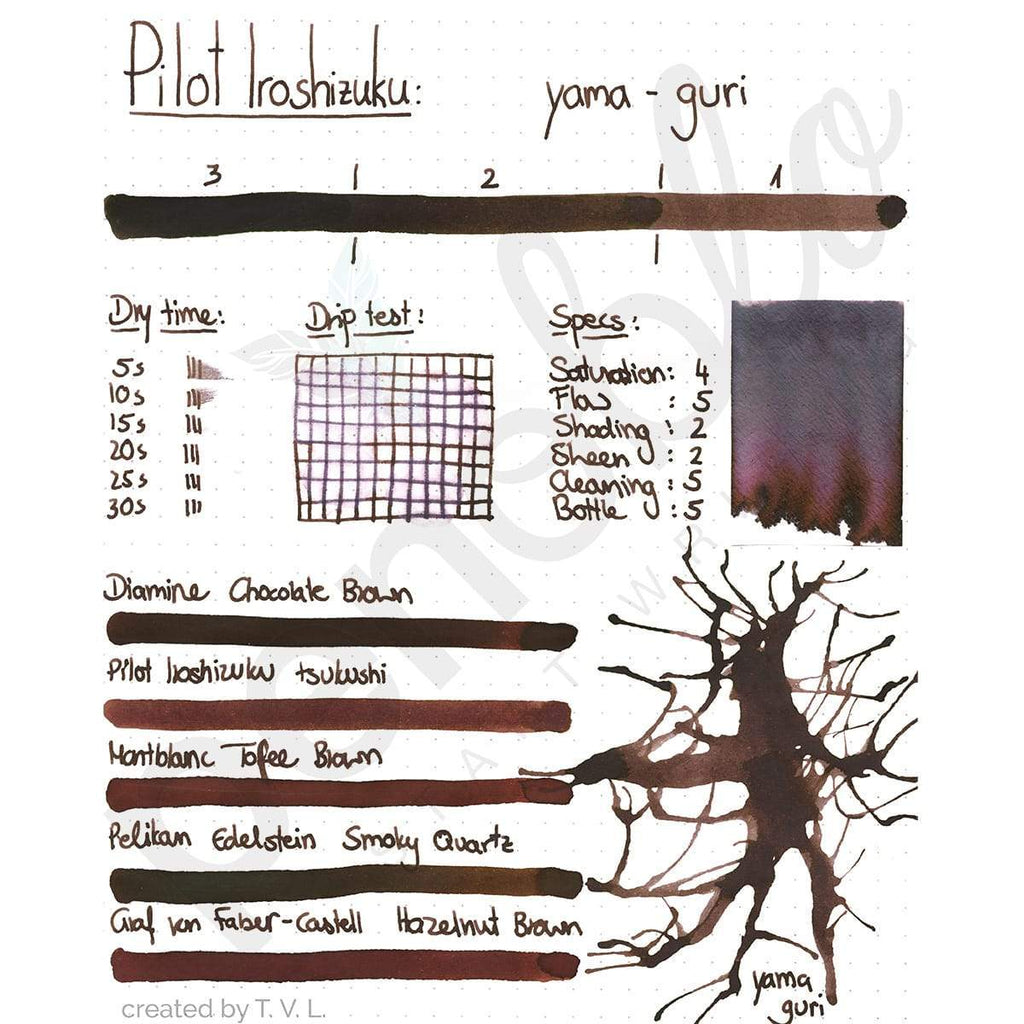 Pilot Iroshizuku: yama - guri
3 | 2 | 1
Dry time:
5s
10s
15s
20s
25s
30s
Drip test:
Specs:
Saturation: 4
Flow : 5
Shading : 2
Sheen : 2
Cleaning : 5
Bottle : 5
Diamine Chocolate Brown
Pilot Iroshizuku tsukushi
Montblanc Tofee Brown
Pelikan Edelstein Smoky Quartz
Graf von Faber-Castell Hazelnut Brown
yama
guri
created by T. V. L.
penoblo